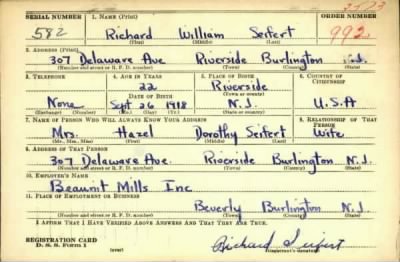 2573
SERIAL NUMBER 1. NAME (Print) ORDER NUMBER
582 Richard William Seifert 992
(First) (Middle) (Last)
2. ADDRESS (Print)
307 Delaware Ave Riverside Burlington N.J.
(Number and street or R. F. D. number) (Town) (County) (State)
3. TELEPHONE 4. AGE IN YEARS 5. PLACE OF BIRTH 6. COUNTRY OF CITIZENSHIP
22 Riverside
DATE OF BIRTH (Town or county)
None Sept 26 1918 N.J. U.S.A
(Exchange) (Number) (Mo.) (Day) (Yr.) (State or country)
7. NAME OF PERSON WHO WILL ALWAYS KNOW YOUR ADDRESS 8. RELATIONSHIP OF THAT PERSON
Mrs. Hazel Dorothy Seifert Wife
(Mr., Mrs., Miss) (First) (Middle) (Last)
9. ADDRESS OF THAT PERSON
307 Delaware Ave. Riverside Burlington N.J.
(Number and street or R. F. D. number) (Town) (County) (State)
10. EMPLOYER'S NAME
Beaunit Mills Inc
11. PLACE OF EMPLOYMENT OR BUSINESS
Beverly Burlington N.J.
(Number and street or R. F. D. number) (Town) (County) (State)
I AFFIRM THAT I HAVE VERIFIED ABOVE ANSWERS AND THAT THEY ARE TRUE.
REGISTRATION CARD
D. S. S. Form 1 (over) Richard Seifert
(Registrant's signature)